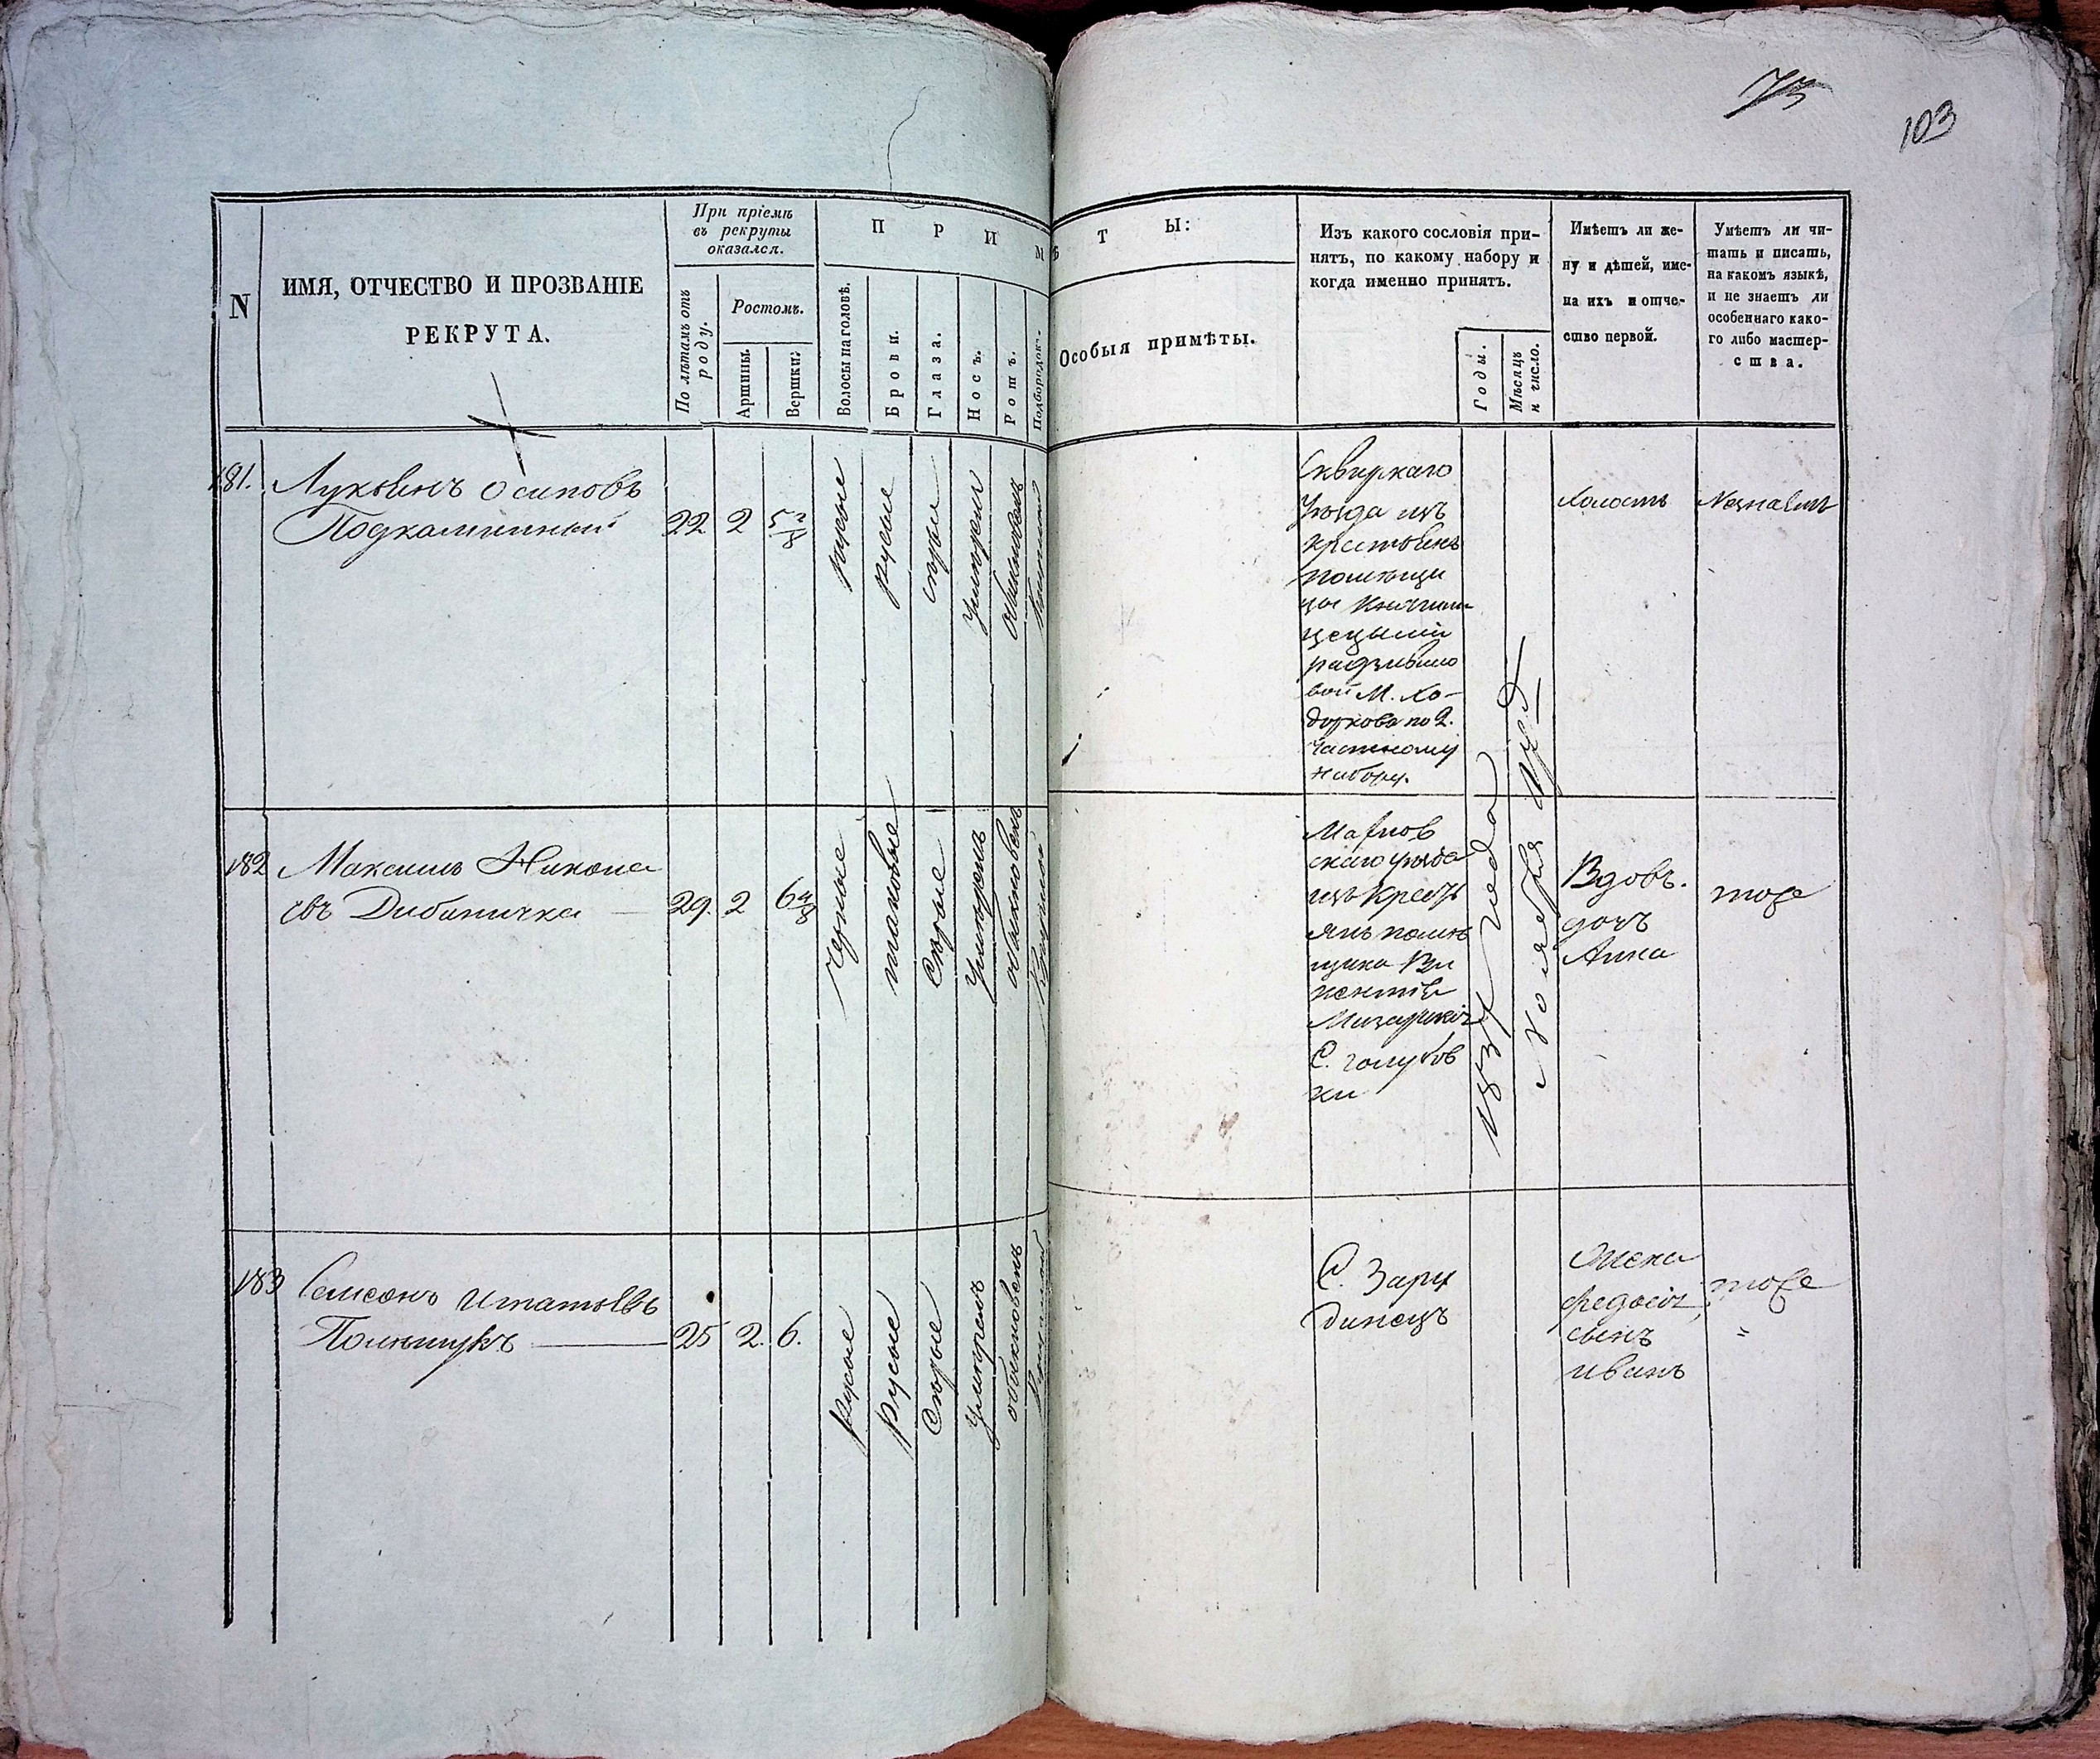 73
103
N
ИМЯ, ОТЧЕСТВО И ПРОЗВАНІЕ
РЕКРУТА.
При пріемѣ
въ рекруты
оказался.
По лѣтамъ отъ
роду.
Ростомъ.
Аршины.
Вершки.
ПРИМѢТЫ:
Волосы на головѣ.
Брови.
Глаза.
Носъ.
Ротъ.
Подбородокъ.
Особыя примѣты.
Изъ какого сословія при-
нятъ, по какому набору и
когда именно принятъ.
Годы.
Мѣсяцъ
и число.
Имѣетъ ли же-
ну и дѣтей, име-
на ихъ и отче-
ство первой.
Умѣетъ ли чи-
тать и писать,
на какомъ языкѣ,
и не знаетъ ли
особеннаго како-
го либо мастер-
ства.
181.
Лукьянъ Осиповъ
Подкаминный
22
2
5 2/8
русые
русые
серые
умерен
обыкновенъ
Сквирскаго
Уезда изъ
крестьянъ
помѣщи
цы Княгини
радзивило
вой М. Хо-
доркова по 2.
частному
набору.
холостъ
Незнаетъ
182
Максимъ Никола
евъ
29.
2
6 4/8
Черные
таковые
Серые
Умеренъ
обыкновенъ
скаго уезда
изъ Кресть
янъ помѣ
щика Ви
кентія
С. голубов
ки
1834 года
Ноября
Вдовъ.
дочь
Анна
тоже
183
Самсонъ Игнатьевъ
25
2.
6.
Русые
Русые
Серые
Умеренъ
обыкновенъ
С. Зару
динецъ
Жена
Федосія,
сынъ
Иванъ
тоже